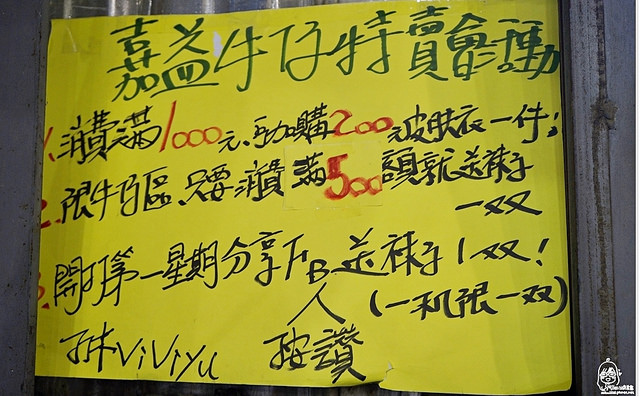 嘉益牛仔特賣會活動
1.消費滿1000元、加購200元皮膚衣一件;
2.限牛仔區、只要消費滿500額就送襪子
一双
3.開打第一星期分享FB送襪子1双!
人(一机限一双)
ViViyu 按讚